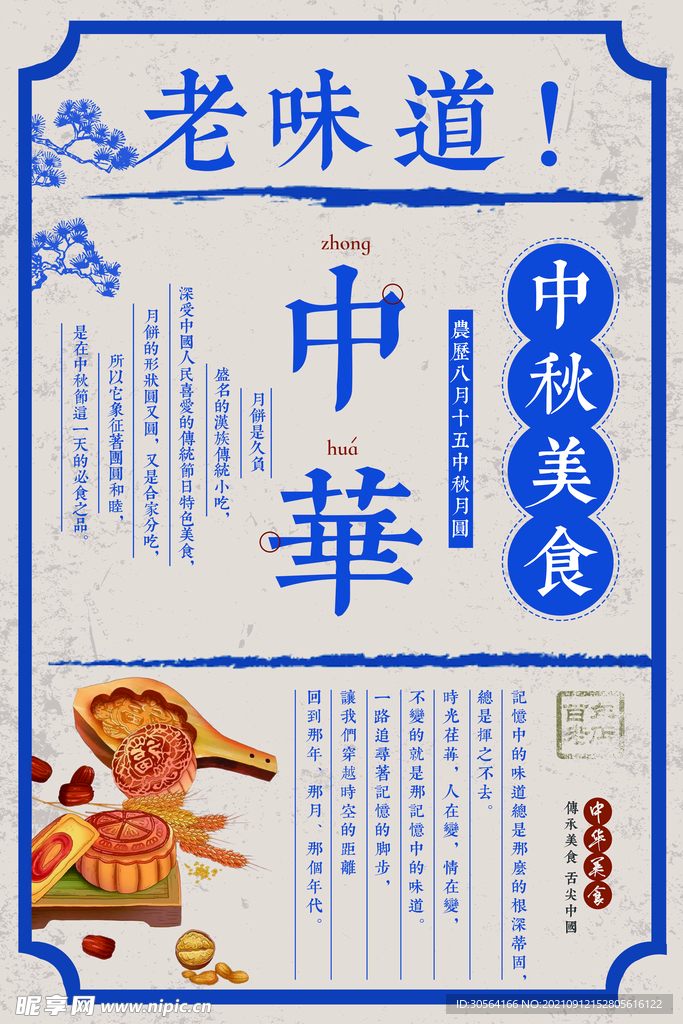 老味道！
zhong
中
huá
華
中秋美食
農歷八月十五中秋月圓
月餅是久負
盛名的漢族傳統小吃，
深受中國人民喜愛的傳統節日特色美食，
月餅的形狀圓又圓，又是合家分吃，
所以它象征著團圓和睦，
是在中秋節這一天的必食之品。
百年
老店
中华美食
傳承美食 舌尖中國
記憶中的味道總是那麼的根深蒂固，
總是揮之不去。
時光荏苒，人在變，情在變，
不變的就是那記憶中的味道。
一路追尋著記憶的脚步，
讓我們穿越時空的距離
回到那年、那月、那個年代。
昵享网 www.nipic.cn
ID:30564166 NO:20210912152805616122